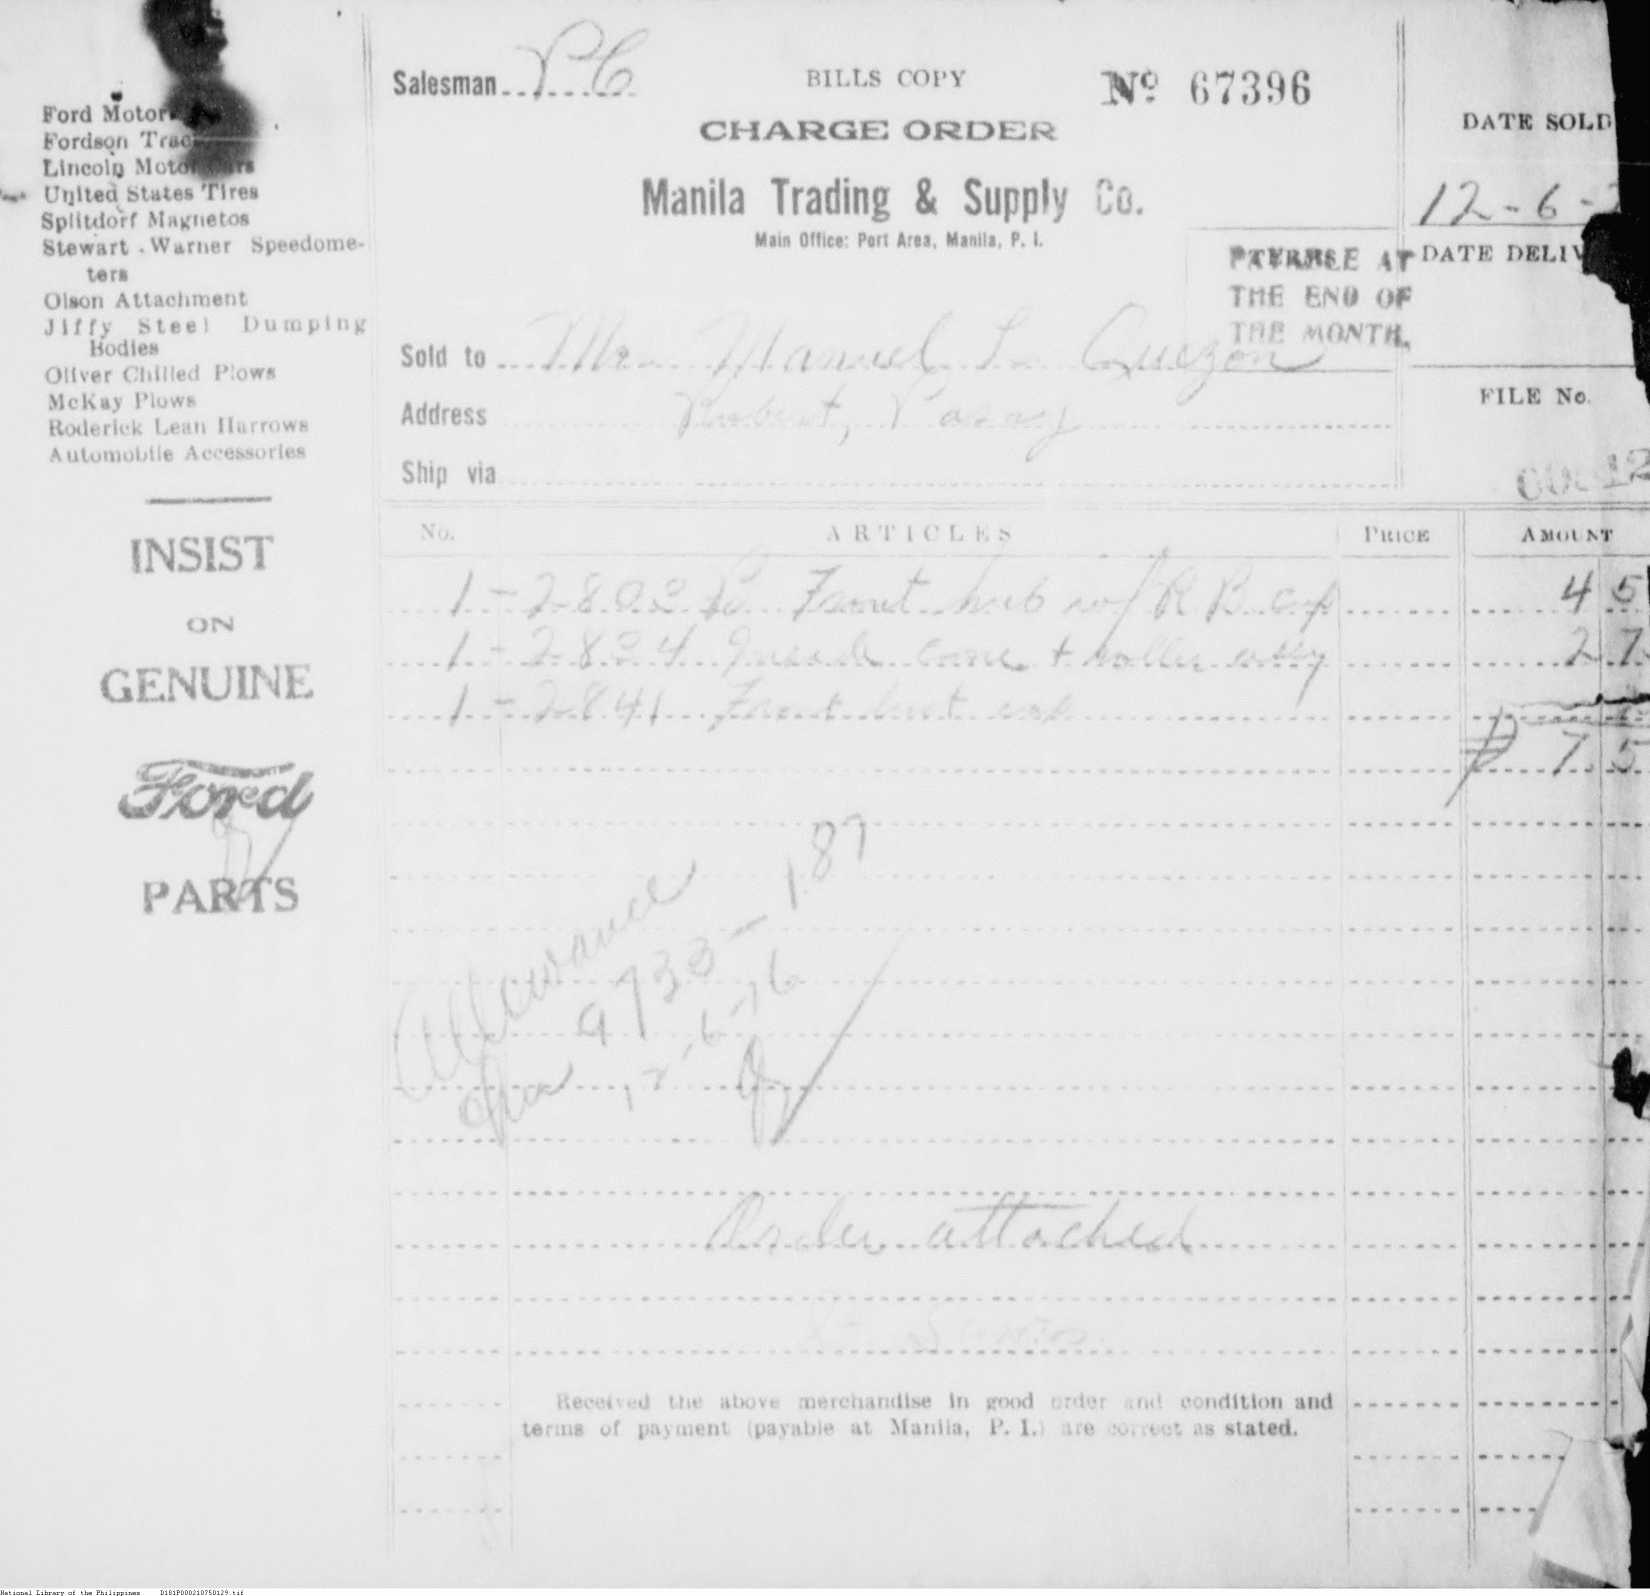 Ford Motor
Fordson Trac
Lincoln Motor Cars
United States Tires
Splitdorf Magnetos
Stewart - Warner Speedome-
ters
Olson Attachment
Jiffy Steel Dumping
Bodies
Oliver Chilled Plows
McKay Plows
Roderick Lean Harrows
Automobile Accessories
INSIST
ON
GENUINE
Ford
PARTS
Salesman P.C
BILLS COPY
No 67396
CHARGE ORDER
Manila Trading & Supply Co.
Main Office: Port Area, Manila, P. I.
DATE SOLD
12-6-
DATE DELIV
PAYABLE AT
THE END OF
THE MONTH.
Sold to Mr. Manuel L. Quezon
Address Pasay
Ship via
FILE No.
No. ARTICLES PRICE AMOUNT
1 - Front hub w/ R B cup 4 5
1 - 2824 cone & roller assy 2 7
1 - 2841 Front
₱ 7 5
Allowance
9733 - 1.87
12-6-26
Order attached
Santos
Received the above merchandise in good order and condition and
terms of payment (payable at Manila, P. I.) are correct as stated.
National Library of the Philippines D181P000210750129.tif